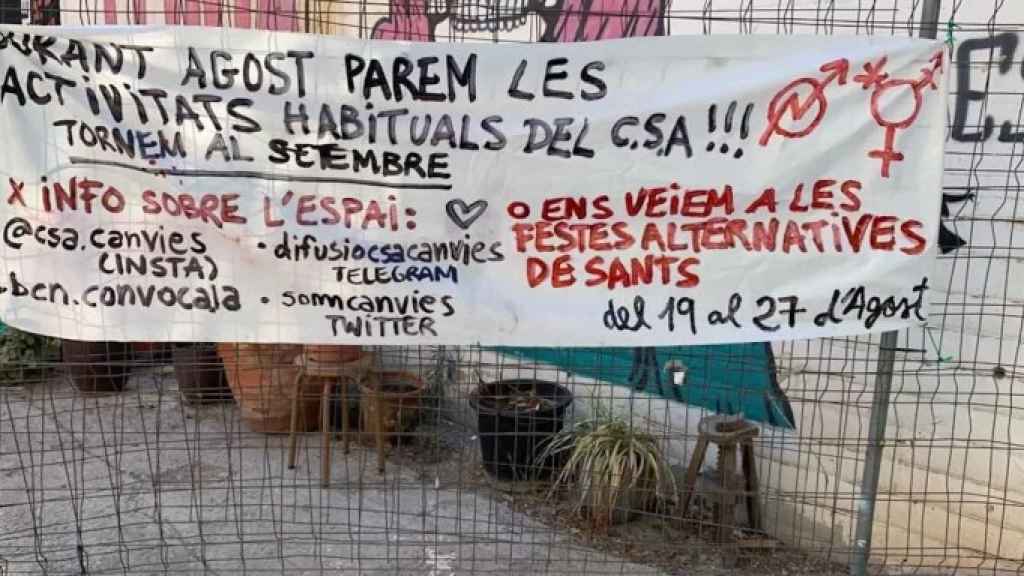 DURANT AGOST PAREM LES
ACTIVITATS HABITUALS DEL C.S.A!!!
TORNEM AL SETEMBRE
X INFO SOBRE L'ESPAI:
@csa.canvies
(INSTA)
.bcn.convocala
· difusiocsacanvies
TELEGRAM
· somncanvies
TWITTER
O ENS VEIEM A LES
FESTES ALTERNATIVES
DE SANTS
del 19 al 27 d'Agost